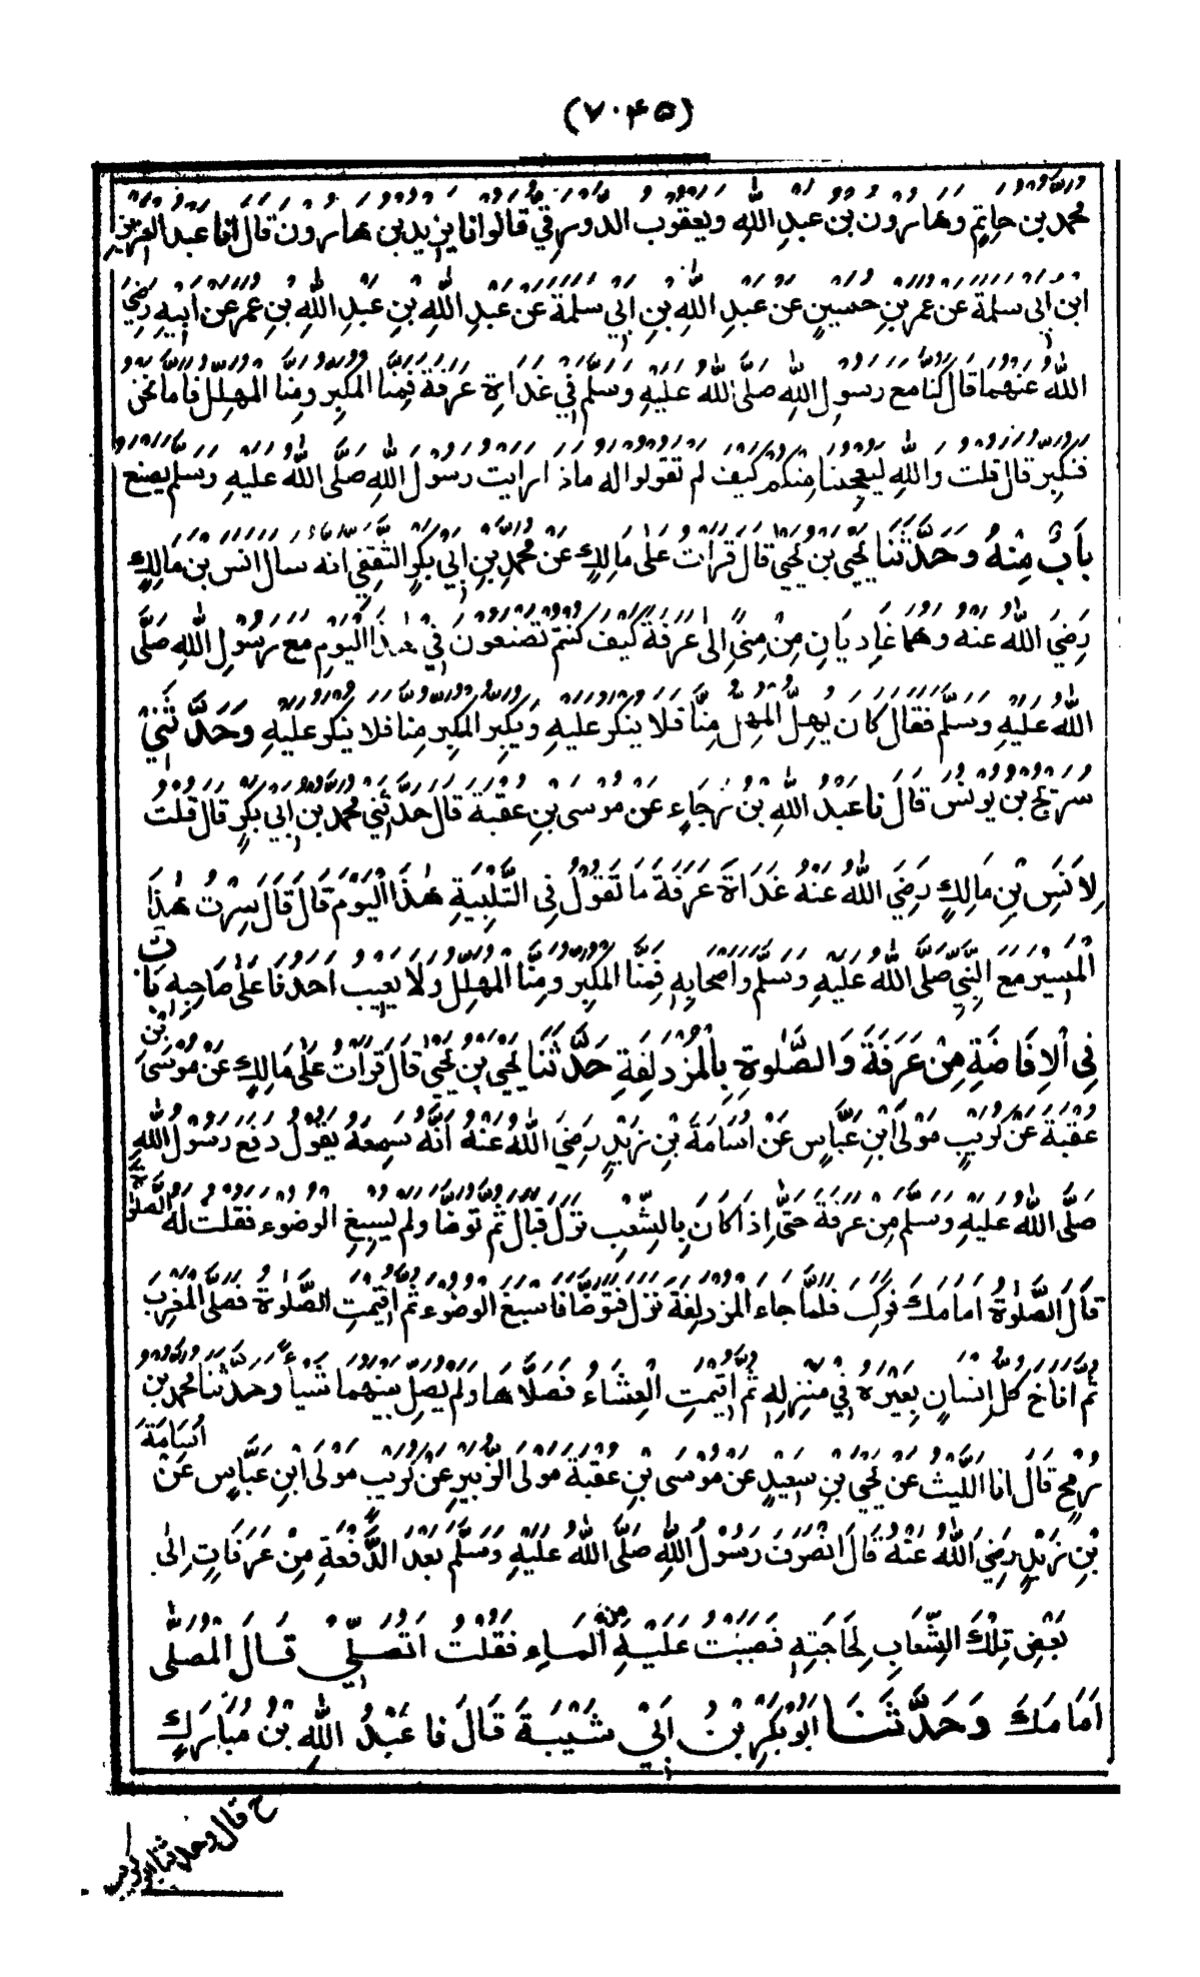 (٧٠٣٥)
محمد بن حاتم وهارون بن عبد الله ويعقوب الدورقي قالوا انا يزيد بن هارون قال انا عبد العزيز
ابن ابي سلمة عن عمر بن حسين عن عبد الله بن ابي سلمة عن عبد الله بن عبد الله بن عمر عن ابيه رضي
الله عنهما قال كنا مع رسول الله صلى الله عليه وسلم في غداة عرفة فمنا المكبر ومنا المهلل فاما نحن
فنكبر قال قلت والله لعجبا منكم كيف لم تقولوا له ماذا رايت رسول الله صلى الله عليه وسلم يصنع
باب منه وحدثنا يحيى بن يحيى قال قرات على مالك عن محمد بن ابي بكر الثقفي انه سال انس بن مالك
رضي الله عنه وهما غاديان من منى الى عرفة كيف كنتم تصنعون في هذا اليوم مع رسول الله صلى
الله عليه وسلم فقال كان يهل المهل منا فلا ينكر عليه ويكبر المكبر منا فلا ينكر عليه وحدثني
سريج بن يونس قال نا عبد الله بن رجاء عن موسى بن عقبة قال حدثني محمد بن ابي بكر قال قلت
لانس بن مالك رضي الله عنه غداة عرفة ما تقول في التلبية هذا اليوم قال قال سرت هذا
المسير مع النبي صلى الله عليه وسلم واصحابه فمنا المكبر ومنا المهلل ولا يعيب احدنا على صاحبه باب
في الافاضة من عرفة والصلوة بالمزدلفة حدثنا يحيى بن يحيى قال قرات على مالك عن موسى بن
عقبة عن كريب مولى ابن عباس عن اسامة بن زيد رضي الله عنه انه سمعه يقول دفع رسول الله
صلى الله عليه وسلم من عرفة حتى اذا كان بالشعب نزل فبال ثم توضا ولم يسبغ الوضوء فقلت له الصلوة
قال الصلوة امامك فركب فلما جاء المزدلفة نزل فتوضا فاسبغ الوضوء ثم اقيمت الصلوة فصلى المغرب
ثم اناخ كل انسان بعيره في منزله ثم اقيمت العشاء فصلاها ولم يصل بينهما شيأ وحدثنا محمد بن
رمح قال انا الليث عن يحيى بن سعيد عن موسى بن عقبة مولى الزبير عن كريب مولى ابن عباس عن اسامة
بن زيد رضي الله عنه قال انصرف رسول الله صلى الله عليه وسلم بعد الدفعة من عرفات الى
بعض تلك الشعاب لحاجته فصببت عليه من الماء فقلت اتصلي قال المصلى
امامك وحدثنا ابو بكر بن ابي شيبة قال نا عبد الله بن مبارك
ح قال وحدثنا ابو كريب